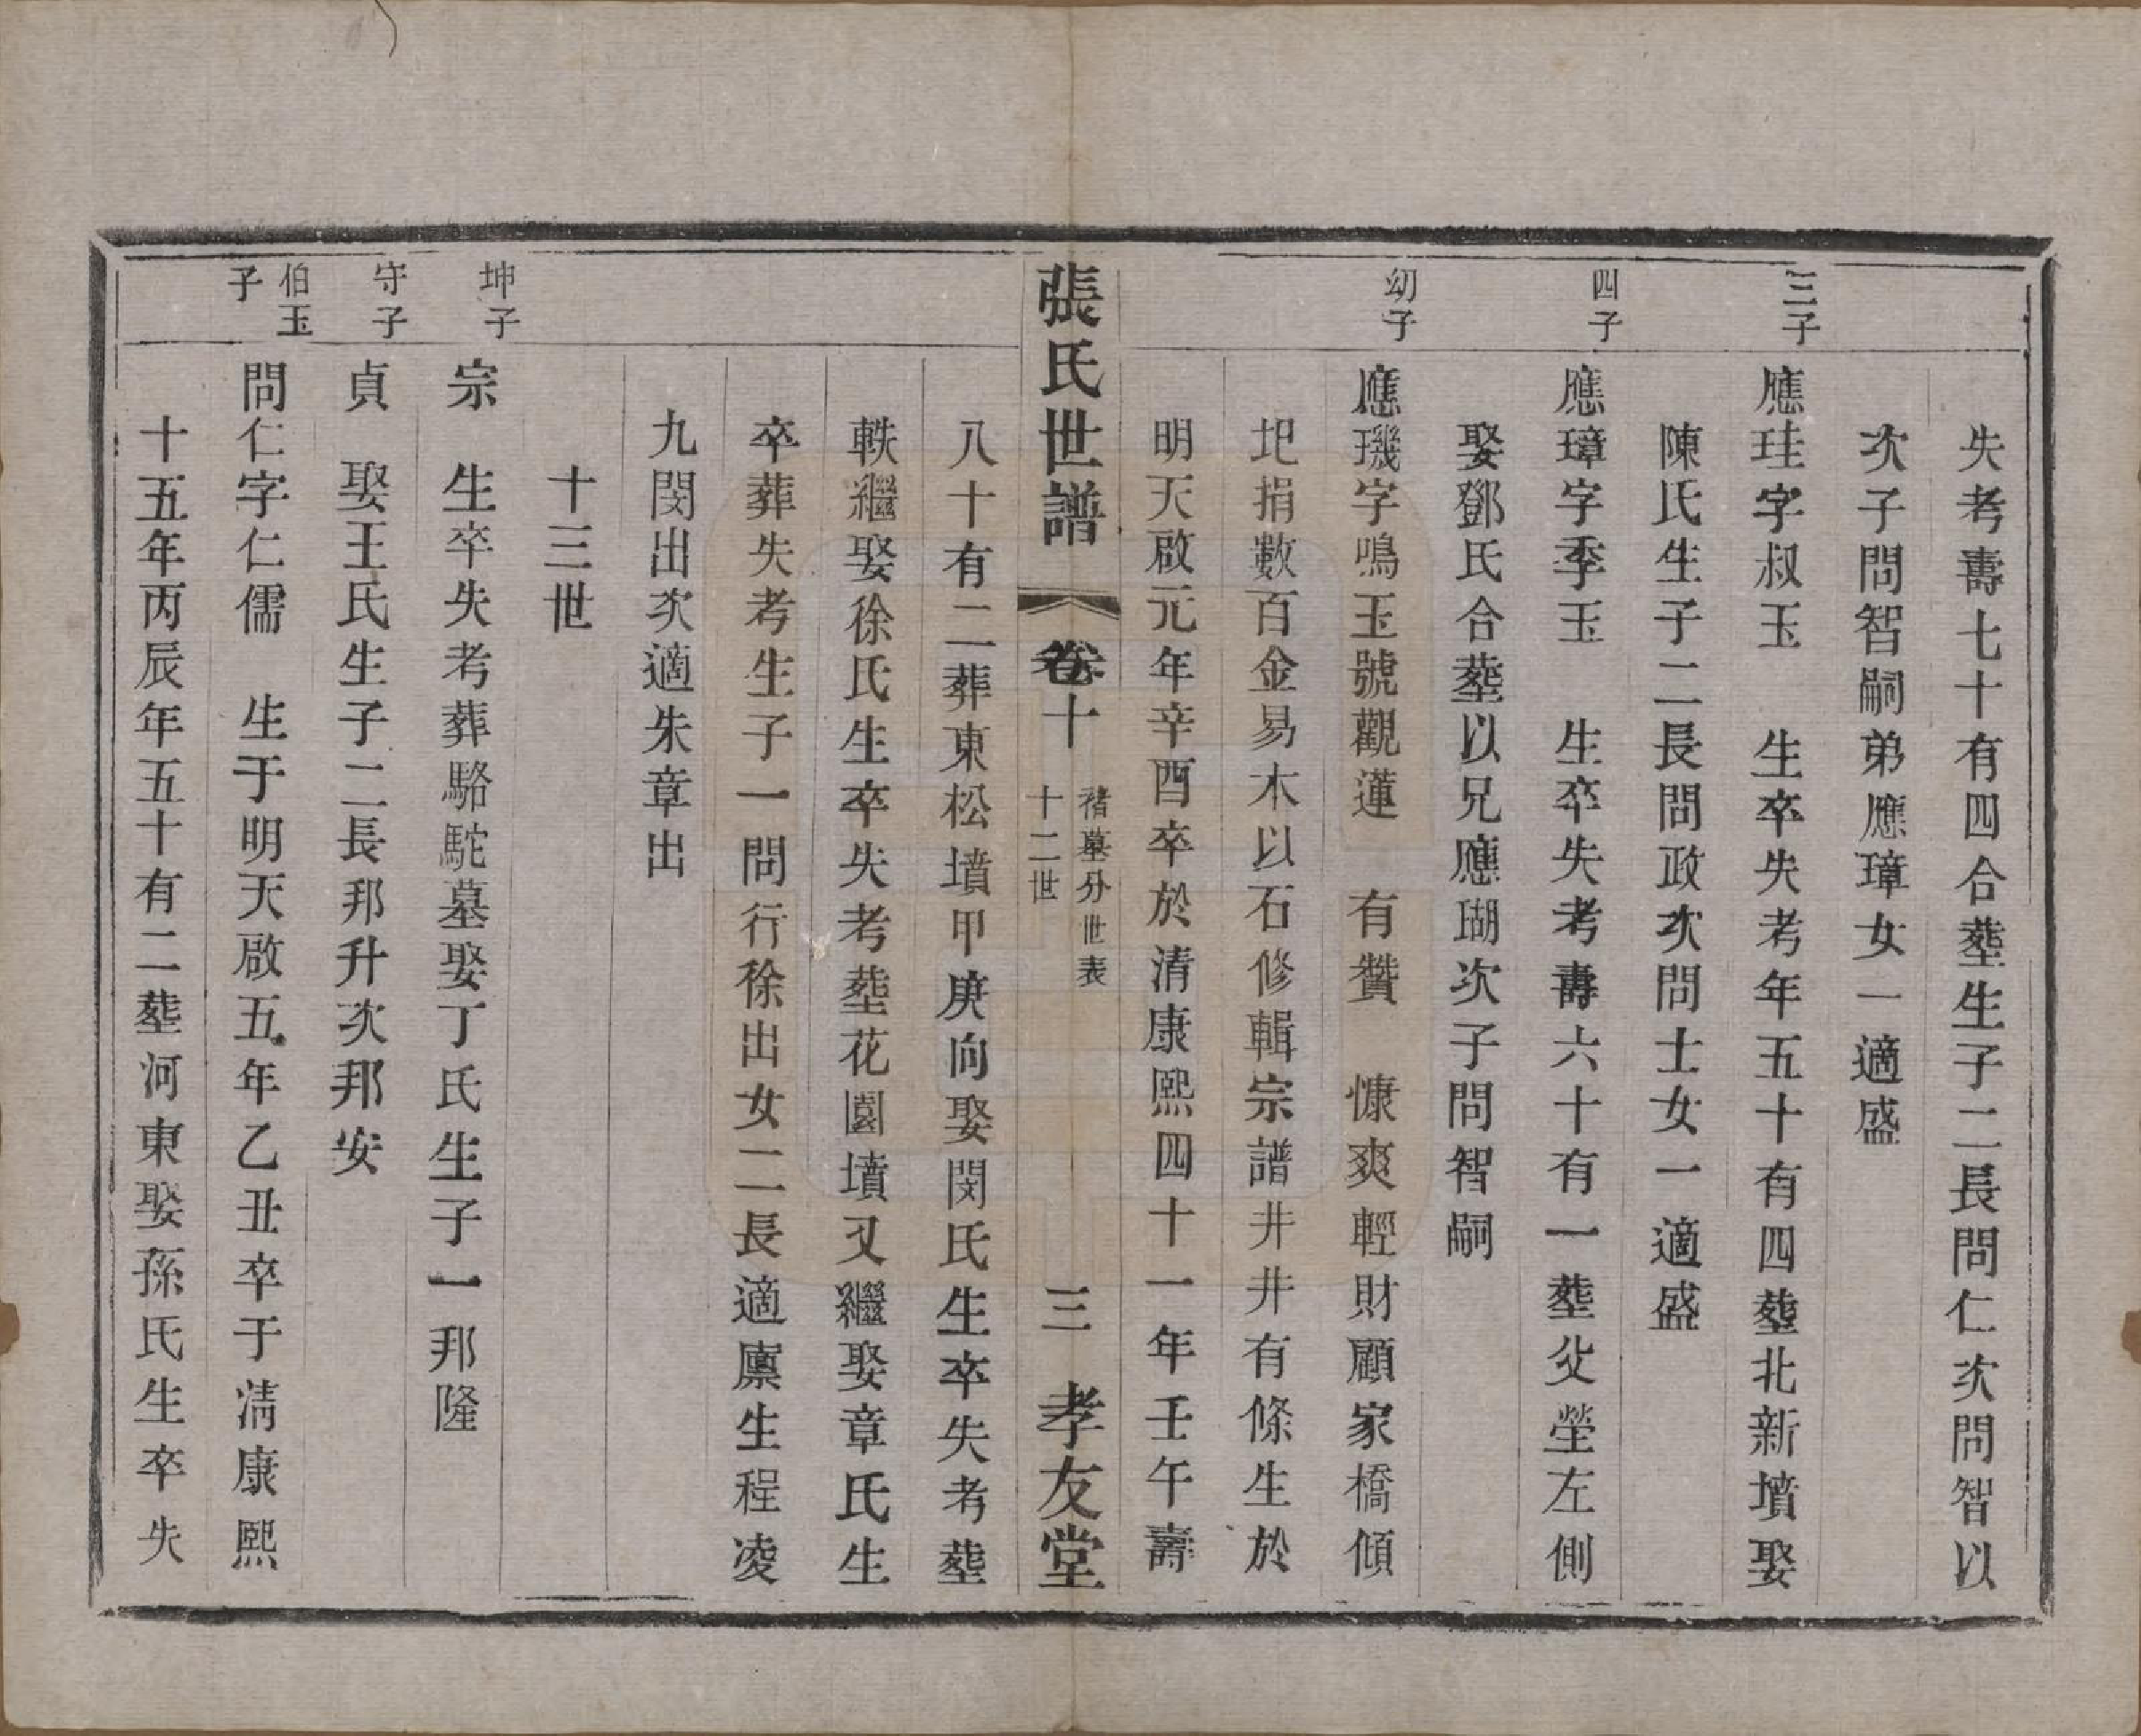 失考壽七十有四合塟生子二長問仁次問智以
次子問智嗣弟應璋女一適盛
三子
應珪字叔玉　生卒失考年五十有四塟北新墳娶
陳氏生子二長問政次問士女一適盛
四子
應璋字季玉　生卒失考壽六十有一塟父塋左側
娶鄧氏合塟以兄應瑚次子問智嗣
幼子
應璣字鳴玉號觀蓮　有贊　慷爽輕財顧家橋傾
圯捐數百金易木以石修輯宗譜井井有條生於
明天啟元年辛酉卒於清康熙四十一年壬午壽
張氏世譜　卷十　褚墓分世表　十二世　三　孝友堂
八十有二葬東松墳甲庚向娶閔氏生卒失考塟
軼繼娶徐氏生卒失考塟花園墳又繼娶章氏生
卒葬失考生子一問行徐出女二長適廪生程凌
九閔出次適朱章出
十三世
坤子
宗　生卒失考葬駱駝墓娶丁氏生子一邦隆
守子
貞　娶王氏生子二長邦升次邦安
伯玉子
問仁字仁儒　生于明天啟五年乙丑卒于凊康熙
十五年丙辰年五十有二塟河東娶孫氏生卒失